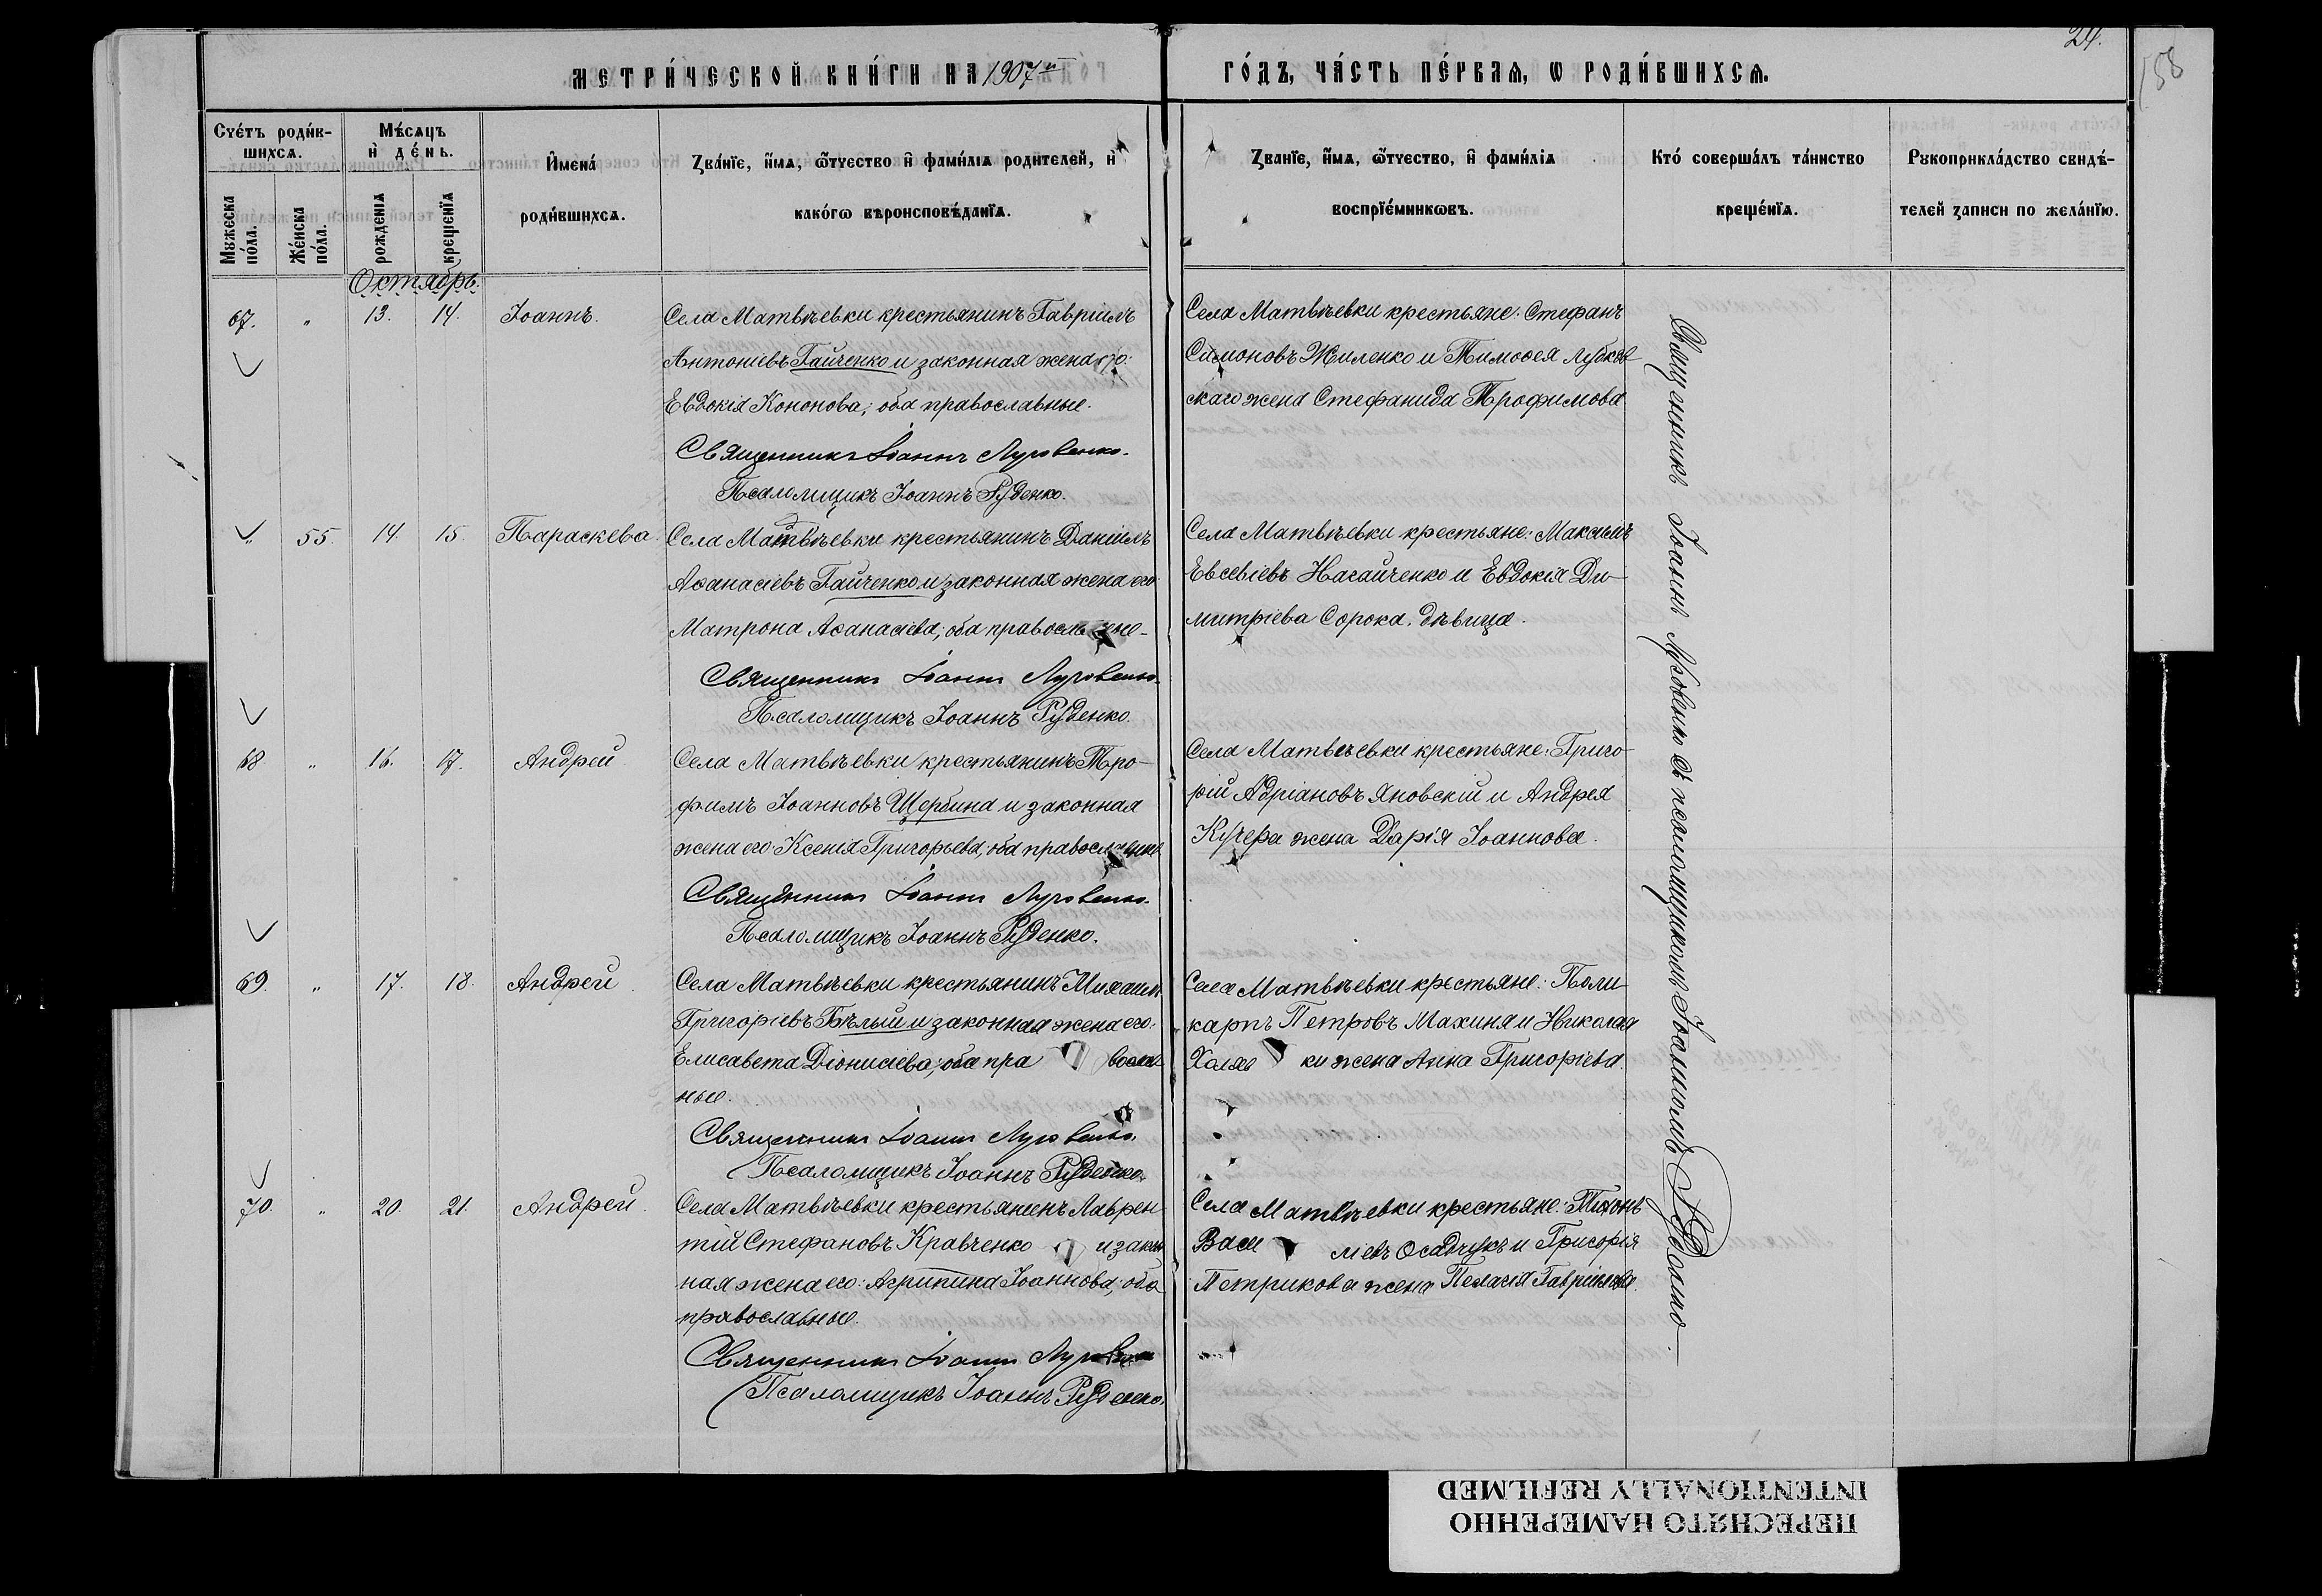 24.
158
МЕТРИ́ЧЕСКОЙ КНИ́ГИ НА 1907й
ГО́ДЪ, ЧА́СТЬ ПЕ́РВАЯ, Ѡ РОДИ́ВШИХСѦ.
Сче́тъ роди́в-
шихсѧ.
Мꙋжеска по́ла.
Же́нска по́ла.
Мѣ́сѧцъ
и҆ де́нь.
рожденїѧ
крещенїѧ
И҆мена́
роди́вшихсѧ.
Зва́нїе, и҆́мѧ, ѻ҆́тчество и҆ фами́лїѧ родителей, и҆
како́гѡ вѣроисповѣ́данїѧ.
Званїе, и҆́мѧ, ѻ҆́тчество, и҆ фами́лїѧ
воспрїе́мникѡвъ.
Кто́ соверша́лъ та́инство
креще́нїѧ.
Рꙋкоприкла́дство свидѣ́-
телей записи по жела́нїю.
Октябрь.
67. " 13. 14. Іоаннъ.
Села Матвѣевки крестьянинъ Гавріилъ
Антоніевъ Гайченко и законная жена его:
Евдокія Кононова; оба православные.
Священникъ Іоаннъ Луговенко.
Псаломщикъ Іоаннъ Руденко.
Села Матвѣевки крестьяне: Стефанъ
Симоновъ Жиленко и Тимоѳея Лубков
скаго жена Стефанида Трофимова
" 55. 14. 15. Параскева
Села Матвѣевки крестьянинъ Даніилъ
Аѳанасіевъ Гайченко и законная жена его
Матрона Аѳанасіева; оба православные
Священникъ Іоаннъ Луговенко.
Псаломщикъ Іоаннъ Руденко.
Села Матвѣевки крестьяне: Максимъ
Евсевіевъ Нагайченко и Евдокія Ди-
митріева Сорока, дѣвица.
68 " 16. 17. Андрей
Села Матвѣевки крестьянинъ Тро-
фимъ Іоанновъ Щербина и законная
жена его Ксенія Григорьева; оба православные
Священникъ Іоаннъ Луговенко.
Псаломщикъ Іоаннъ Руденко.
Села Матвѣевки крестьяне: Григо-
рій Адріановъ Яновскій и Андрея
Кучера жена Дарія Іоаннова.
69. " 17. 18. Андрей.
Села Матвѣевки крестьянинъ Михаилъ
Григоріевъ Бѣлый и законная жена его:
Елисавета Діонисіева; оба пра вослав
ные.
Священникъ Іоаннъ Луговенко.
Псаломщикъ Іоаннъ Руденко.
Села Матвѣевки крестьяне: Поли-
карпъ Петровъ Махиня и Николая
Халяв ки жена Анна Григоріева.
70. " 20. 21. Андрей.
Села Матвѣевки крестьянинъ Лаврен
тій Стефановъ Кравченко и закон
ная жена его: Агрипина Іоаннова; оба
православные.
Священникъ Іоаннъ Луговенко
Псаломщикъ Іоаннъ Руденко.
Села Матвѣевки крестьяне: Тихонъ
Васи ліевъ Осадчукъ и Григорія
Петрикова жена Пелагія Гавріилова.
Священникъ Іоаннъ Луговенко съ псаломщикомъ Іоанномъ Руденко.
ПЕРЕСНЯТО НАМЕРЕННО
INTENTIONALLY REFILMED